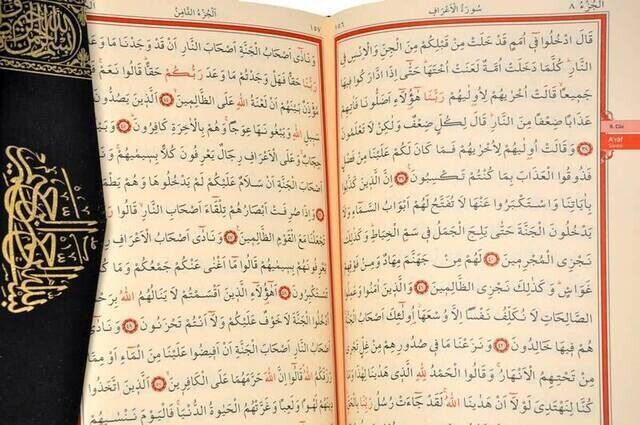 اَلْجُزْءُ ٨
سُورَةُ الْاَعْرَافِ
قَالَ ادْخُلُوا فِي اُمَمٍ قَدْ خَلَتْ مِنْ قَبْلِكُمْ مِنَ الْجِنِّ وَالْاِنْسِ فِي
النَّارِ كُلَّمَا دَخَلَتْ اُمَّةٌ لَعَنَتْ اُخْتَهَا حَتّٰى اِذَا ادَّارَكُوا فِيهَا
جَمِيعًا قَالَتْ اُخْرٰيهُمْ لِاُولٰيهُمْ رَبَّنَا هٰؤُلَاءِ اَضَلُّونَا فَاٰتِهِمْ
عَذَابًا ضِعْفًا مِنَ النَّارِ قَالَ لِكُلٍّ ضِعْفٌ وَلٰكِنْ لَا تَعْلَمُونَ
وَقَالَتْ اُولٰيهُمْ لِاُخْرٰيهُمْ فَمَا كَانَ لَكُمْ عَلَيْنَا مِنْ فَضْلٍ
فَذُوقُوا الْعَذَابَ بِمَا كُنْتُمْ تَكْسِبُونَ اِنَّ الَّذِينَ كَذَّبُوا
بِاٰيَاتِنَا وَاسْتَكْبَرُوا عَنْهَا لَا تُفَتَّحُ لَهُمْ اَبْوَابُ السَّمَاءِ وَلَا
يَدْخُلُونَ الْجَنَّةَ حَتّٰى يَلِجَ الْجَمَلُ فِي سَمِّ الْخِيَاطِ وَكَذٰلِكَ
نَجْزِي الْمُجْرِمِينَ لَهُمْ مِنْ جَهَنَّمَ مِهَادٌ وَمِنْ فَوْقِهِمْ
غَوَاشٍ وَكَذٰلِكَ نَجْزِي الظَّالِمِينَ وَالَّذِينَ اٰمَنُوا وَعَمِلُوا
الصَّالِحَاتِ لَا نُكَلِّفُ نَفْسًا اِلَّا وُسْعَهَا اُولٰئِكَ اَصْحَابُ الْجَنَّةِ
هُمْ فِيهَا خَالِدُونَ وَنَزَعْنَا مَا فِي صُدُورِهِمْ مِنْ غِلٍّ تَجْرِي
مِنْ تَحْتِهِمُ الْاَنْهَارُ وَقَالُوا الْحَمْدُ لِلّٰهِ الَّذِي هَدٰينَا لِهٰذَا وَمَا
كُنَّا لِنَهْتَدِيَ لَوْلَا اَنْ هَدٰينَا اللّٰهُ لَقَدْ جَاءَتْ رُسُلُ رَبِّنَا بِالْحَقِّ
8. Cüz
A'râf
Sûresi
اَلْجُزْءُ الثَّامِنُ
وَنَادٰى اَصْحَابُ الْجَنَّةِ اَصْحَابَ النَّارِ اَنْ قَدْ وَجَدْنَا مَا وَعَدَنَا
رَبُّنَا حَقًّا فَهَلْ وَجَدْتُمْ مَا وَعَدَ رَبُّكُمْ حَقًّا قَالُوا نَعَمْ
مُؤَذِّنٌ بَيْنَهُمْ اَنْ لَعْنَةُ اللّٰهِ عَلَى الظَّالِمِينَ اَلَّذِينَ يَصُدُّونَ
سَبِيلِ اللّٰهِ وَيَبْغُونَهَا عِوَجًا وَهُمْ بِالْاٰخِرَةِ كَافِرُونَ
حِجَابٌ وَعَلَى الْاَعْرَافِ رِجَالٌ يَعْرِفُونَ كُلًّا بِسِيمٰيهُمْ
اَصْحَابَ الْجَنَّةِ اَنْ سَلَامٌ عَلَيْكُمْ لَمْ يَدْخُلُوهَا وَهُمْ
وَاِذَا صُرِفَتْ اَبْصَارُهُمْ تِلْقَاءَ اَصْحَابِ النَّارِ قَالُوا
تَجْعَلْنَا مَعَ الْقَوْمِ الظَّالِمِينَ وَنَادٰى اَصْحَابُ الْاَعْرَافِ
يَعْرِفُونَهُمْ بِسِيمٰيهُمْ قَالُوا مَا اَغْنٰى عَنْكُمْ جَمْعُكُمْ وَمَا
تَسْتَكْبِرُونَ اَهٰؤُلَاءِ الَّذِينَ اَقْسَمْتُمْ لَا يَنَالُهُمُ اللّٰهُ بِرَحْمَةٍ
اُدْخُلُوا الْجَنَّةَ لَا خَوْفٌ عَلَيْكُمْ وَلَا اَنْتُمْ تَحْزَنُونَ وَنَادٰى
اَصْحَابُ النَّارِ اَصْحَابَ الْجَنَّةِ اَنْ اَفِيضُوا عَلَيْنَا مِنَ الْمَاءِ اَوْ مِمَّا
رَزَقَكُمُ اللّٰهُ قَالُوا اِنَّ اللّٰهَ حَرَّمَهُمَا عَلَى الْكَافِرِينَ اَلَّذِينَ اتَّخَذُوا
دِينَهُمْ لَهْوًا وَلَعِبًا وَغَرَّتْهُمُ الْحَيٰوةُ الدُّنْيَا فَالْيَوْمَ نَنْسٰيهُمْ